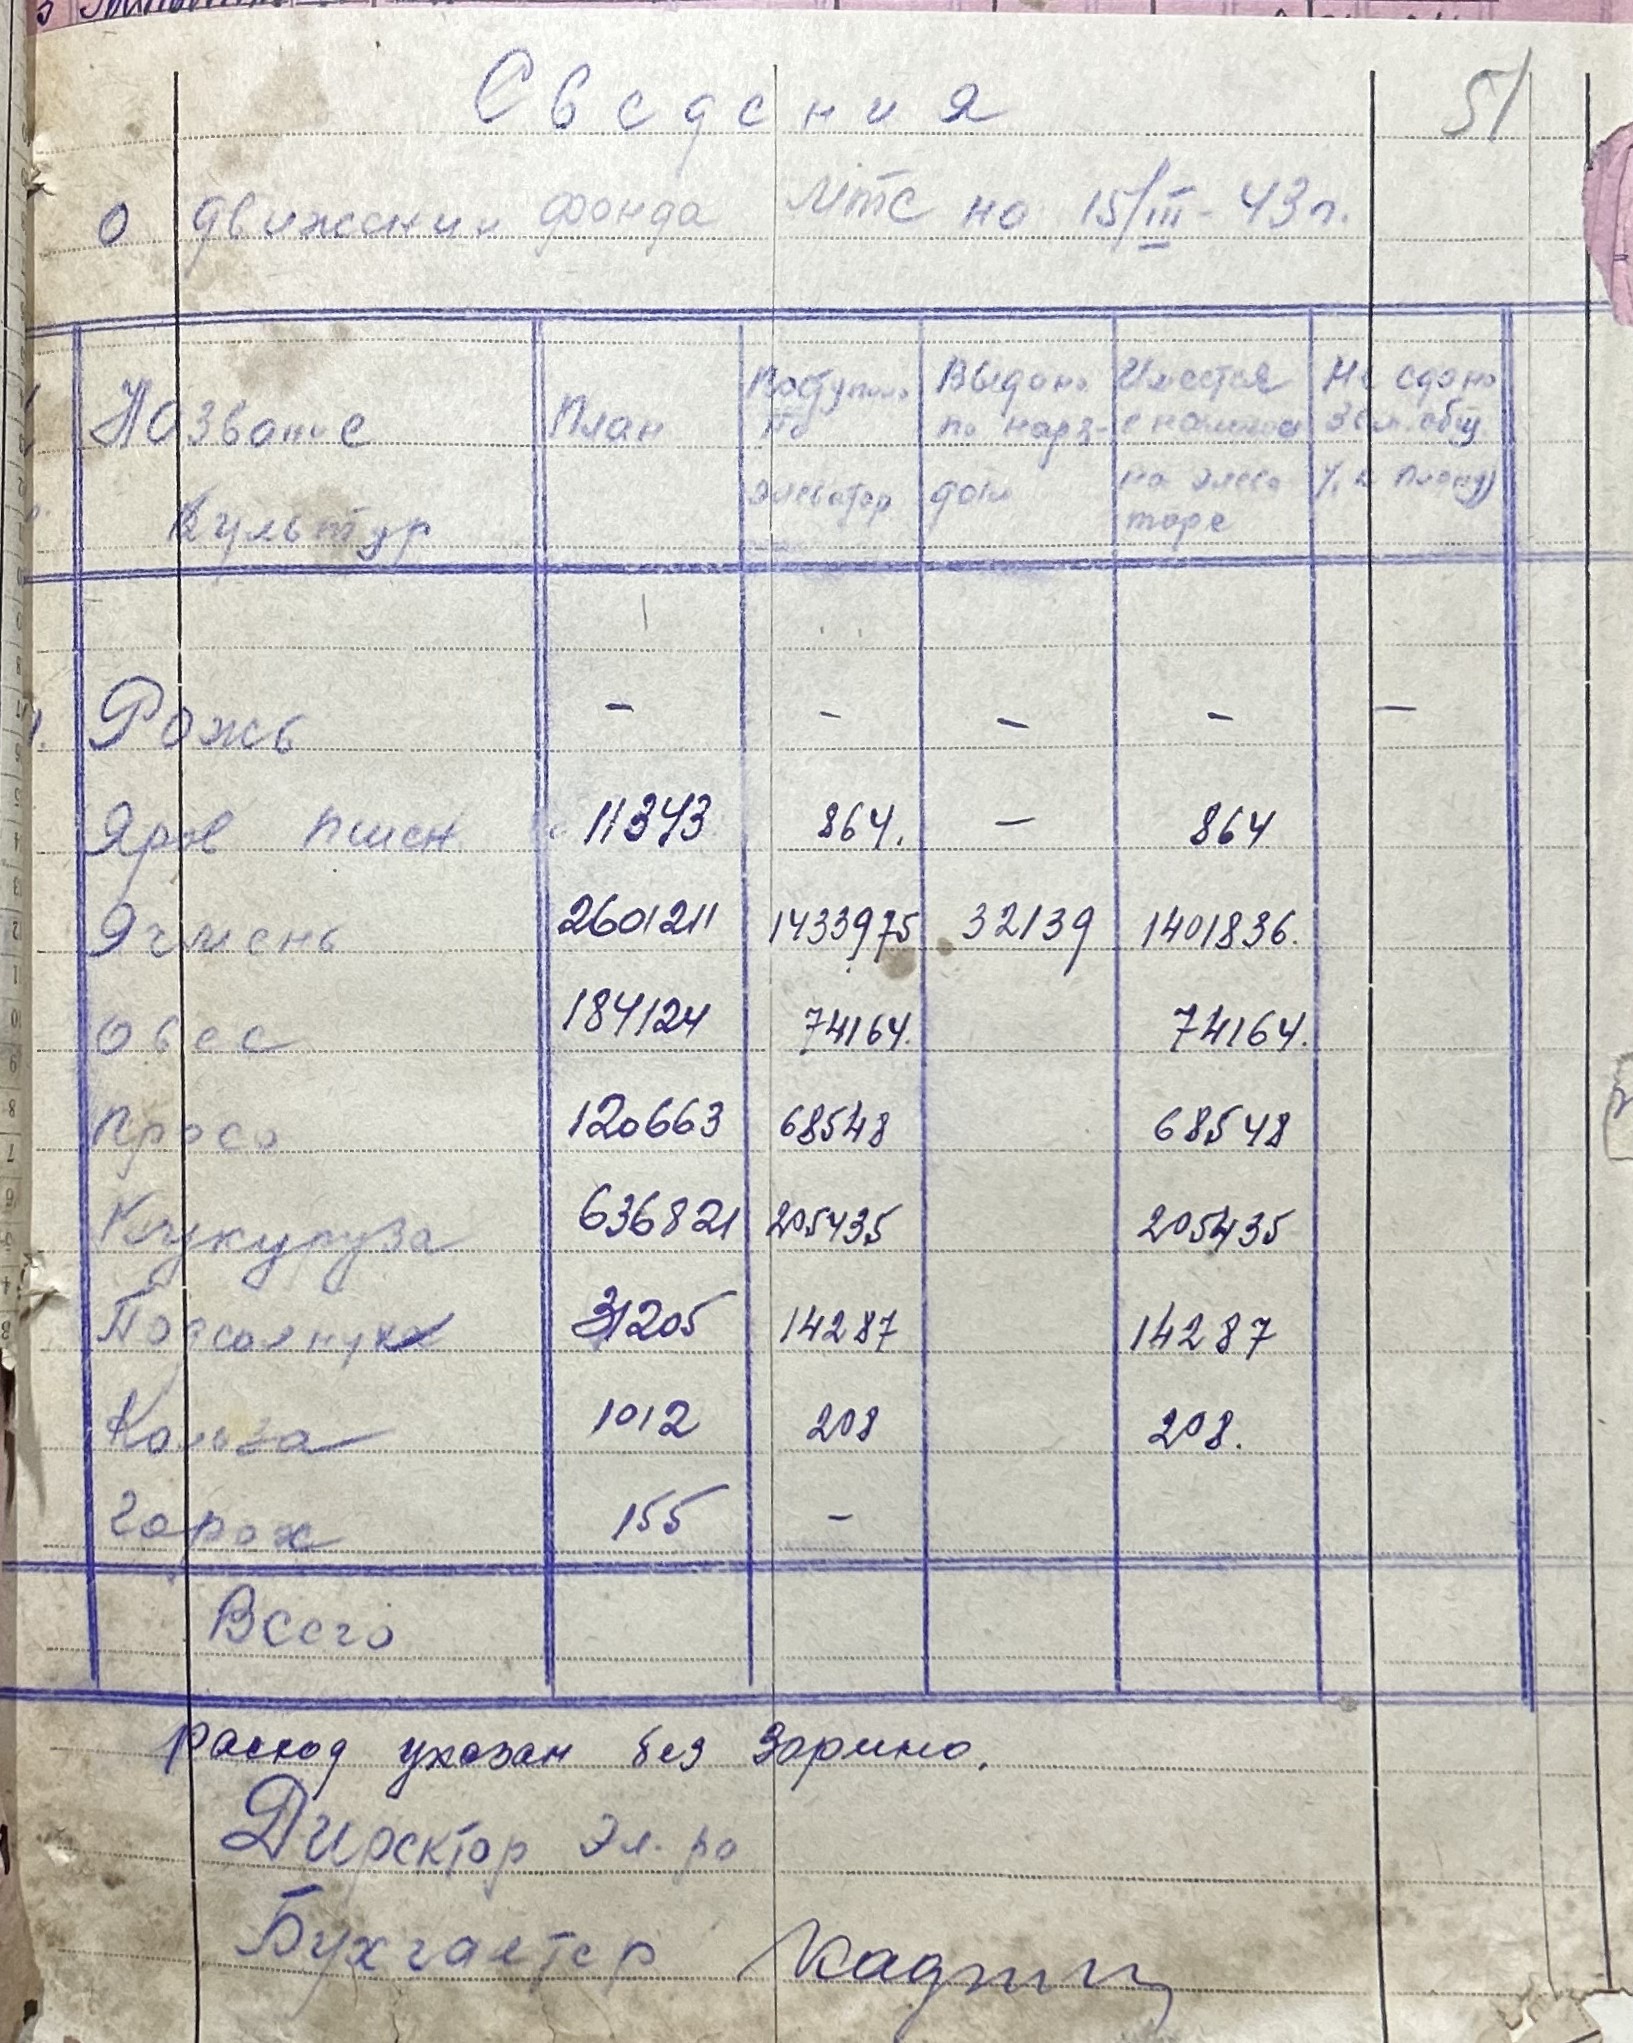 Сведения
51
о движении фонда МТС на 15/III-43г.
Название Культур | План | Поступило по элеватор | Выдано по наря-дам | Имеется в наличии на элеваторе | Не сдано Зем. общ. % к плану
Рожь | - | - | - | - | -
Яров пшен | 11343 | 864. | - | 864
Ячмень | 2601211 | 1433975 | 32139 | 1401836.
Овес | 184124 | 74164. | 74164.
Просо | 120663 | 68548 | 68548
Кукуруза | 636821 | 205435 | 205435
Подсолнух | 31205 | 14287 | 14287
Кользa | 1012 | 208 | 208.
Горох | 155 | -
Всего
расход указан без
Директор Эл-ра
Бухгалтер